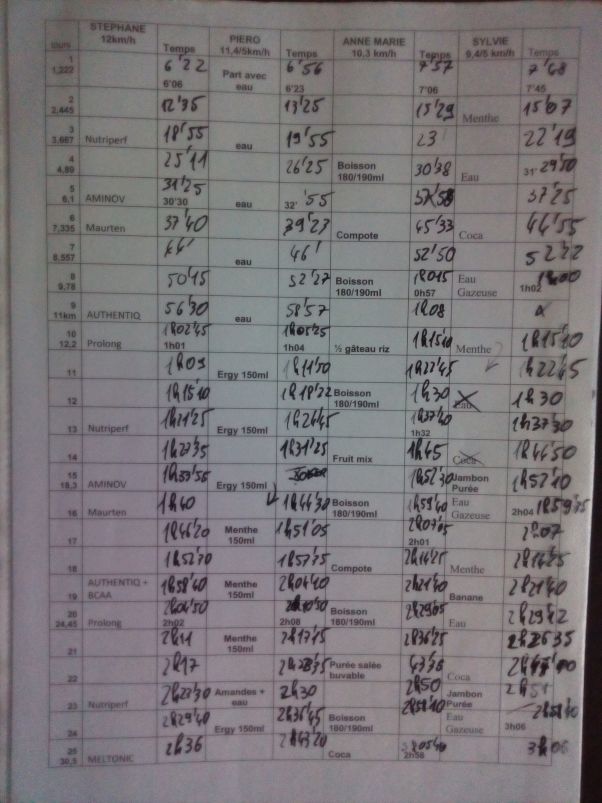 tours STEPHANE 12km/h Temps PIERO 11,4/5km/h Temps ANNE MARIE 10,3 km/h Temps SYLVIE 9,4/5 km/h Temps
1 1,222 6'22 6'06 Part avec eau 6'56 6'23 7'57 7'06 7'48 7'45
2 2,445 12'35 13'25 15'29 Menthe 15'07
3 3,667 Nutriperf 18'55 eau 19'55 23 22'19
4 4,89 25'11 26'25 Boisson 180/190ml 30'38 Eau 31' 29'50
5 6,1 AMINOV 31'25 30'30 eau 32' '55 37'25
6 7,335 Maurten 37'40 39'23 Compote 45'33 Coca 44'55
7 8,557 44' eau 46' 52'50 52'22
8 9,78 50'15 52'27 Boisson 180/190ml 1h00'15 0h57 Eau Gazeuse 1h02
9 11km AUTHENTIQ 56'30 eau 58'57 1h08
10 12,2 Prolong 1h02'45 1h01 1h05'25 1h04 ½ gâteau riz 1h15'10 Menthe ? 1h15'10
11 1h09 Ergy 150ml 1h11'50 1h22'45 1h22'45
12 1h15'10 1h18'22 Boisson 180/190ml 1h30 Eau 1h30
13 Nutriperf 1h21'25 Ergy 150ml 1h24'45 1h37'40 1h32 1h37'30
14 1h27'35 1h31'25 Fruit mix 1h45 Coca 1h44'50
15 18,3 AMINOV 1h33'55 Ergy 150ml 1h52'30 Jambon Purée 1h52'10
16 Maurten 1h40 1h44'30 Boisson 180/190ml 1h59'40 Eau Gazeuse 2h04 1h59'35
17 1h46'20 Menthe 150ml 1h51'05 2h07'05 2h01 2h07
18 1h52'30 1h57'35 Compote 2h14'25 Menthe 2h14'25
19 AUTHENTIQ + BCAA 1h58'40 Menthe 150ml 2h04'10 2h21'40 Banane 2h21'40
20 24,45 Prolong 2h04'50 2h02 2h10'50 2h08 Boisson 180/190ml 2h29'05 Eau 2h29'12
21 2h11 Menthe 150ml 2h17'45 2h36'25 2h36'35
22 2h17 Purée salée buvable Coca
23 Nutriperf 2h23'30 Amandes + eau 2h30 2h50 Jambon Purée 2h51
24 2h29'40 Ergy 150ml 2h36'45 Boisson 180/190ml 2h58'10 Eau Gazeuse 3h06 2h58'40
25 30,5 MELTONIC 2h36 2h43'20 Coca 2h58 3h06